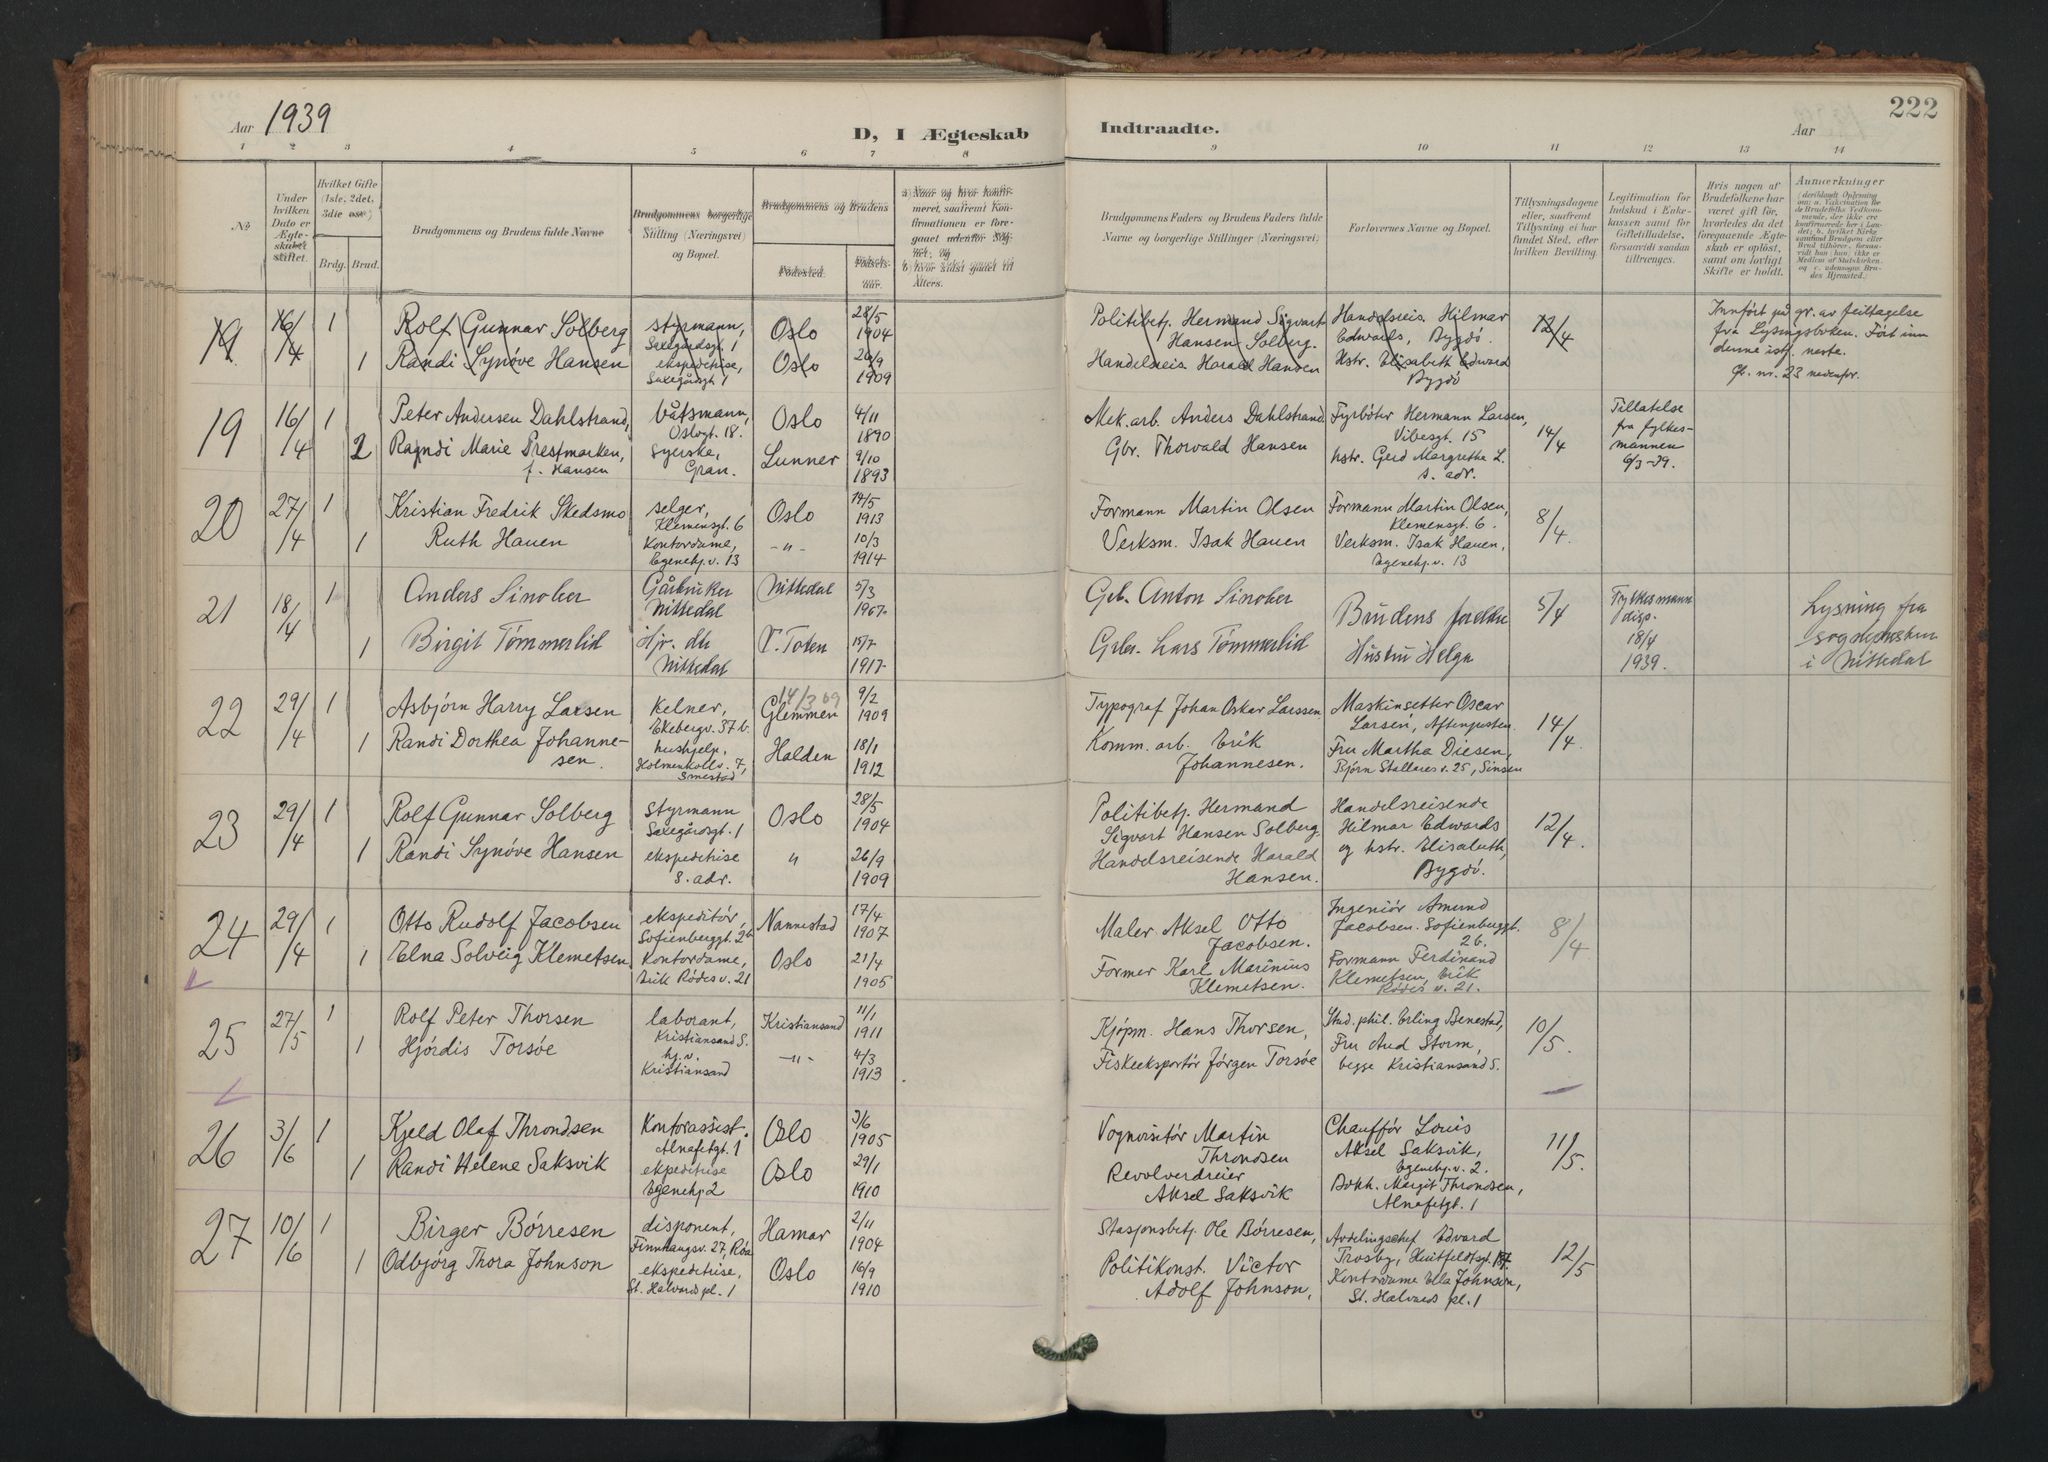 Aar 1939
D, I Ægteskab Indtraadte.
Aar
222
1 2 3 4 5 6 7 8 9 10 11 12 13 14
№
Under hvilken Dato er Ægteskabet stiftet.
Hvilket Gifte (1ste, 2det, 3die osv)
Brdg. Brud.
Brudgommens og Brudens fulde Navne
Brudgommens borgerlige Stilling (Næringsvei) og Bopæl.
Brudgommens og Brudens
Fødested.
Fødselsaar.
a) Naar og hvor konfirmeret, saafremt Konfirmationen er foregaaet udenfor Sognet; og
b) hvor sidst gaaet til Alters.
Brudgommens Faders og Brudens Faders fulde Navne og borgerlige Stillinger (Næringsvei).
Forlovernes Navne og Bopæl.
Tillysningsdagene eller, saafremt Tillysning ei har fundet Sted, efter hvilken Bevilling.
Legitimation for Indskud i Enkekassen samt for Giftetilladelse, forsaavidt saadan tiltrænges.
Hvis nogen af Brudefolkene har været gift før, hvorledes da det foregaaende Ægteskab er opløst, samt om lovligt Skifte er holdt.
Anmærkninger
(deriblandt Oplysning om: a. Vakcination for de Brudefolks Vedkommende, der ikke ere konfirmerede her i Landet; b. hvilket Kirkesamfund Brudgom eller Brud tilhører, forsaavidt han (hun) ikke er Medlem af Statskirken, og c. udensogns Brudes Hjemsted.)
19 16/4 1 Rolf Gunnar Solberg styrmann, Saxegårdsgt. 1 Oslo 28/5 1904 Politibetj. Hermand Sigvart Hansen Solberg. Handelsreis. Hilmar Edwards, Bygdø. 12/4 Innført på gr. av feiltagelse
fra Lysingsboken. Ført inn
denne istf. neste.
Gl. nr. 23 nedenfor.
1 Randi Synøve Hansen ekspeditrise, Saxegårdsgt 1 Oslo 26/9 1909 Handelsreis. Harald Hansen Hstr. Elisabeth Edward Bygdø
19 16/4 1 Peter Andersen Dahlstrand, båtsmann, Oslogt. 18. Oslo 4/11 1890 Mek. arb. Anders Dahlstrand. Fyrbøter Hermann Larsen, Vibesgt. 15 14/4 Tillatelse fra fylkesmannen 6/3-39.
2 Ragndi Marie Prestmarken, f. Hansen Syerske, Gran. Lunner 9/10 1893 Gbr. Thorvald Hansen hstr. Gerd Margrethe L. s. adr.
20 27/4 1 Kristian Fredrik Skedsmo selger, Klemensgt. 6 Oslo 14/5 1913 Formann Martin Olsen Formann Martin Olsen, Klemensgt. 6. 8/4
1 Ruth Hauen Kontordame, Egenehj. v. 13 -"- 10/3 1914 Verksm. Isak Hauen Verksm. Isak Hauen, Egenehj. v. 13
21 18/4 1 Anders Sinober Gårbruker Nittedal Nittedal 5/3 1907. Grb. Anton Sinober Brudens foreldre 5/4 Fylkesmann disp. 18/4 1939. Lysning fra
i Nittedal
1 Birgit Tømmerlid Hjv. du Nittedal V. Toten 15/7 1917. Grbr. Lars Tømmerlid Hustru Helga
22 29/4 1 Asbjørn Harry Larsen Kelner, Ekebergv. 37 b. 14/3 09 Glemmen 9/2 1909 Typograf Johan Oskar Larssen Maskinsetter Oscar Larsen, Aftenposten. 14/4.
1 Randi Dorthea Johannesen. hushjelp, Holmenkollv. 7, Smestad Halden 18/1 1912 Komm. arb. Erik Johannesen. Fru Martha Diesen, Bjørn Stallares v. 25, Sinsen
23 29/4 1 Rolf Gunnar Solberg styrmann Saxegårdsgt. 1 Oslo 28/5 1904 Politibetj. Hermand Sigvart Hansen Solberg. Handelsreisende Hilmar Edwards 12/4.
1 Randi Synøve Hansen ekspeditrise s. adr. " 26/9 1909 Handelsreisende Harald Hansen. og hstr. Elisabeth, Bygdø.
24 29/4 1 Otto Rudolf Jacobsen ekspeditør, Sofienberggt. 26 Nannestad 17/4 1907 Maler Aksel Otto Jacobsen. Ingeniør Amund Jacobsen. Sofienberggt. 26. 8/4
1 Elna Solveig Klemetsen Kontordame, Erik Rødes v. 21 Oslo 21/4 1905 Former Karl Marinius Klemetsen. Formann Ferdinand Klemetsen, Erik Rødes v. 21.
25 27/5 1 Rolf Peter Thorsen laborant, Kristiansand S. Kristiansand 11/1 1911 Kjøpm. Hans Thorsen, Stud. phil. Erling Benestad, 10/5.
1 Hjørdis Torsøe hj. v. Kristiansand -"- 4/3 1913 Fiskeeksportør Jørgen Torsøe Fru Aud Storm, begge Kristiansand S.
26 3/6 1 Kjeld Olaf Throndsen Kontorassist. Alnafetgt. 1 Oslo 3/6 1905 Vognvisitør Martin Throndsen Chauffør Louis Aksel Saksvik, Egenehj. v. 2. 11/5.
1 Randi Helene Saksvik ekspeditrise Egenehj 2 Oslo 29/1 1910 Revolverdreier Aksel Saksvik Bokh. Margit Throndsen, Alnafetgt. 1
27 10/6 1 Birger Børresen disponent, Finnhaugsv. 27, Røa Hamar 2/11 1904 Stasjonsbetj. Ole Børresen, Avdelingschef Edvard Trosby, Huitfeldtsgt. 12/5
1 Odbjørg Thora Johnson ekspeditrise, St. Halvards pl. 1 Oslo 16/9 1910 Politikonst. Victor Adolf Johnson, Kontordame Ella Johnson, St. Halvards pl. 1